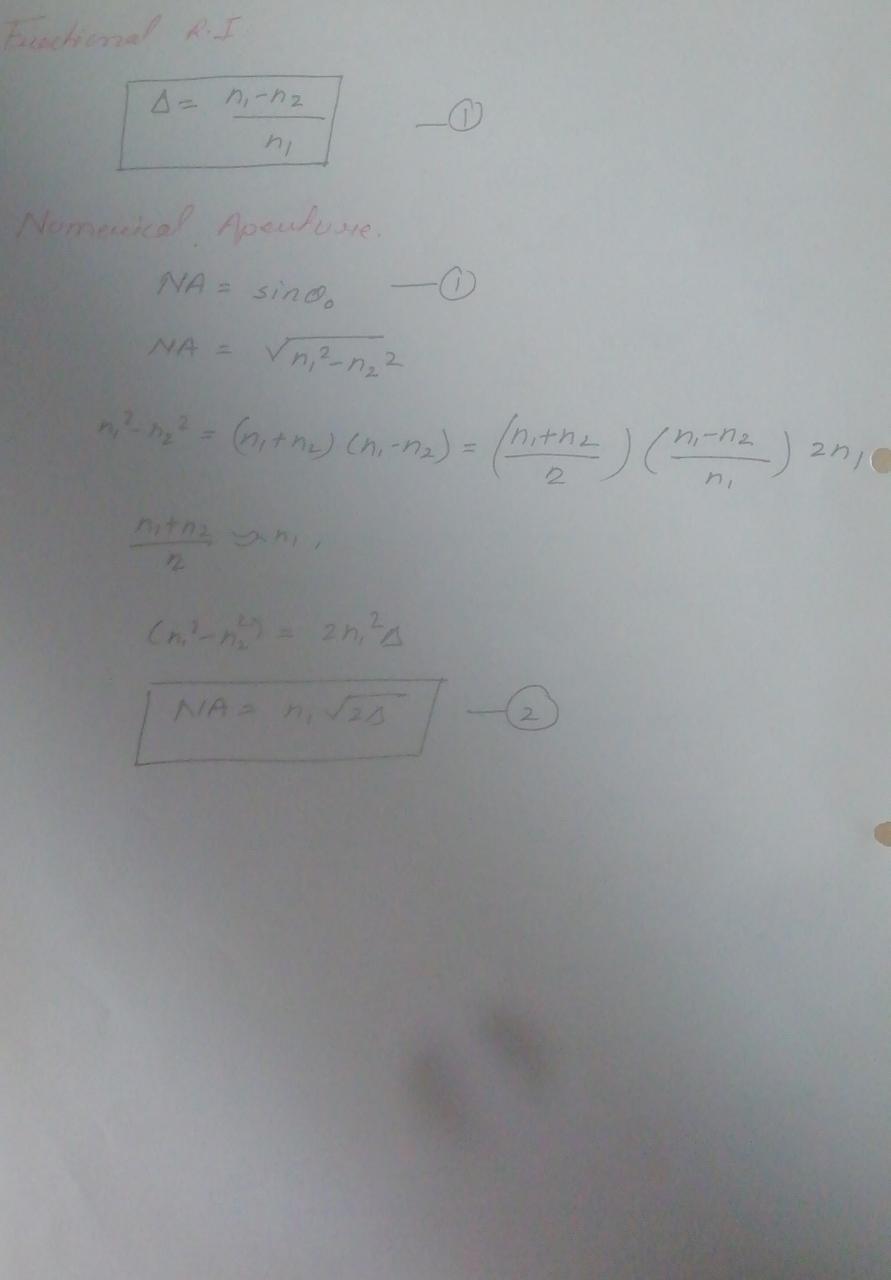 Functional R.I
Δ = n₁-n₂ / n₁ —①
Numerical Aperture.
NA = sinθ₀ —①
NA = √n₁²-n₂²
n₁²-n₂² = (n₁+n₂) (n₁-n₂) = (n₁+n₂ / 2) (n₁-n₂ / n₁) 2n₁
n₁+n₂ / 2 ≈ n₁,
(n₁²-n₂²) = 2n₁²Δ
NA = n₁ √2Δ —②